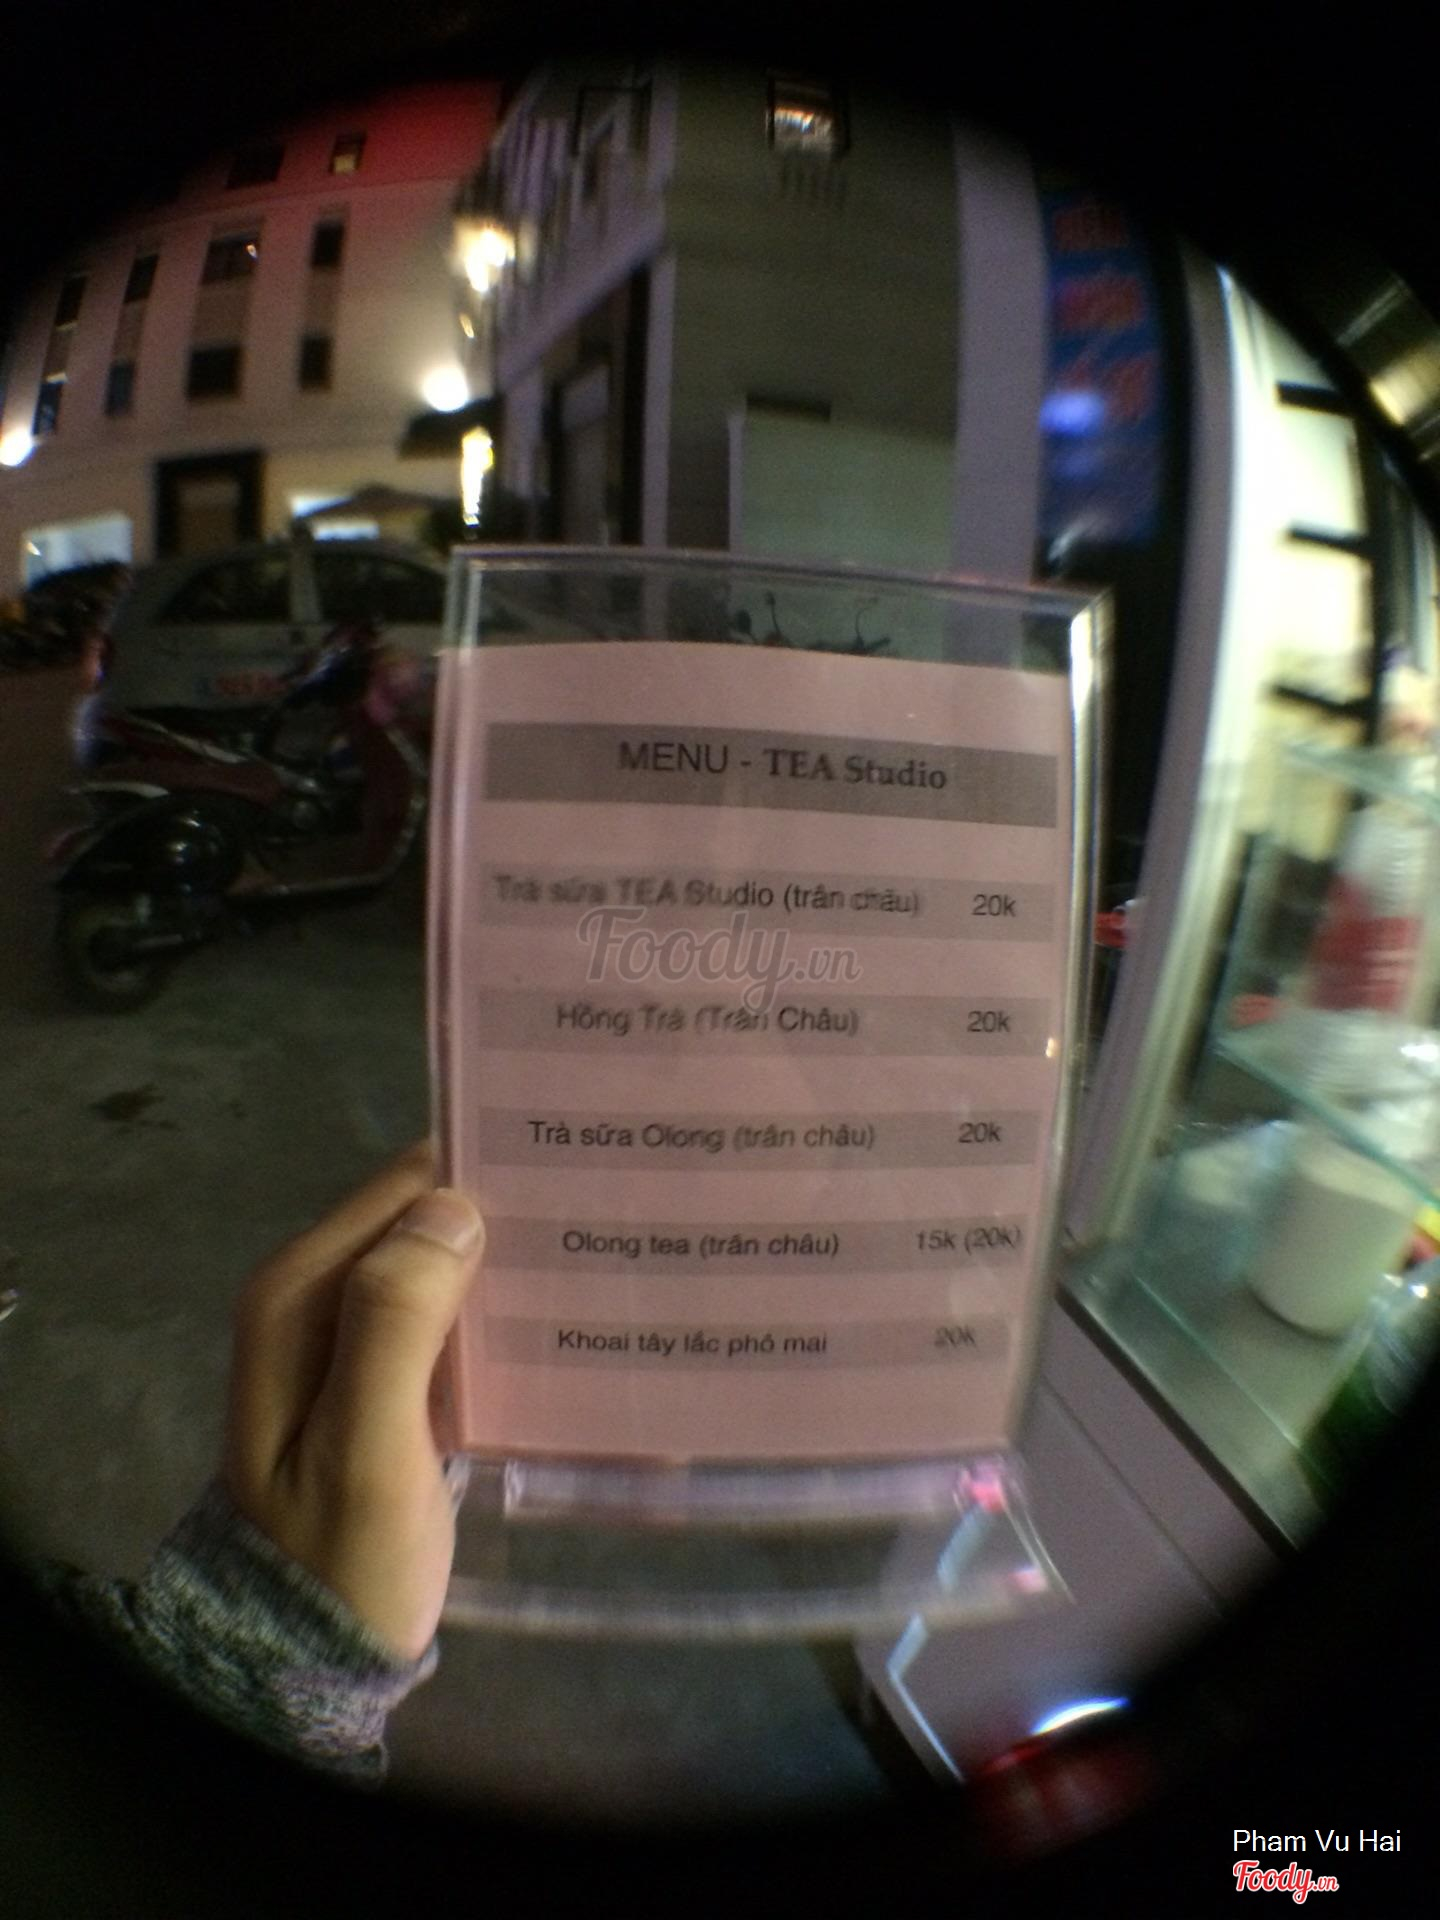 MENU - TEA Studio
Trà sữa TEA Studio (trân châu) 20k
Foody.vn
Hồng Trà (Trân Châu) 20k
Trà sữa Olong (trân châu) 20k
Olong tea (trân châu) 15k (20k)
Khoai tây lắc phô mai 20k
Pham Vu Hai
Foody.vn